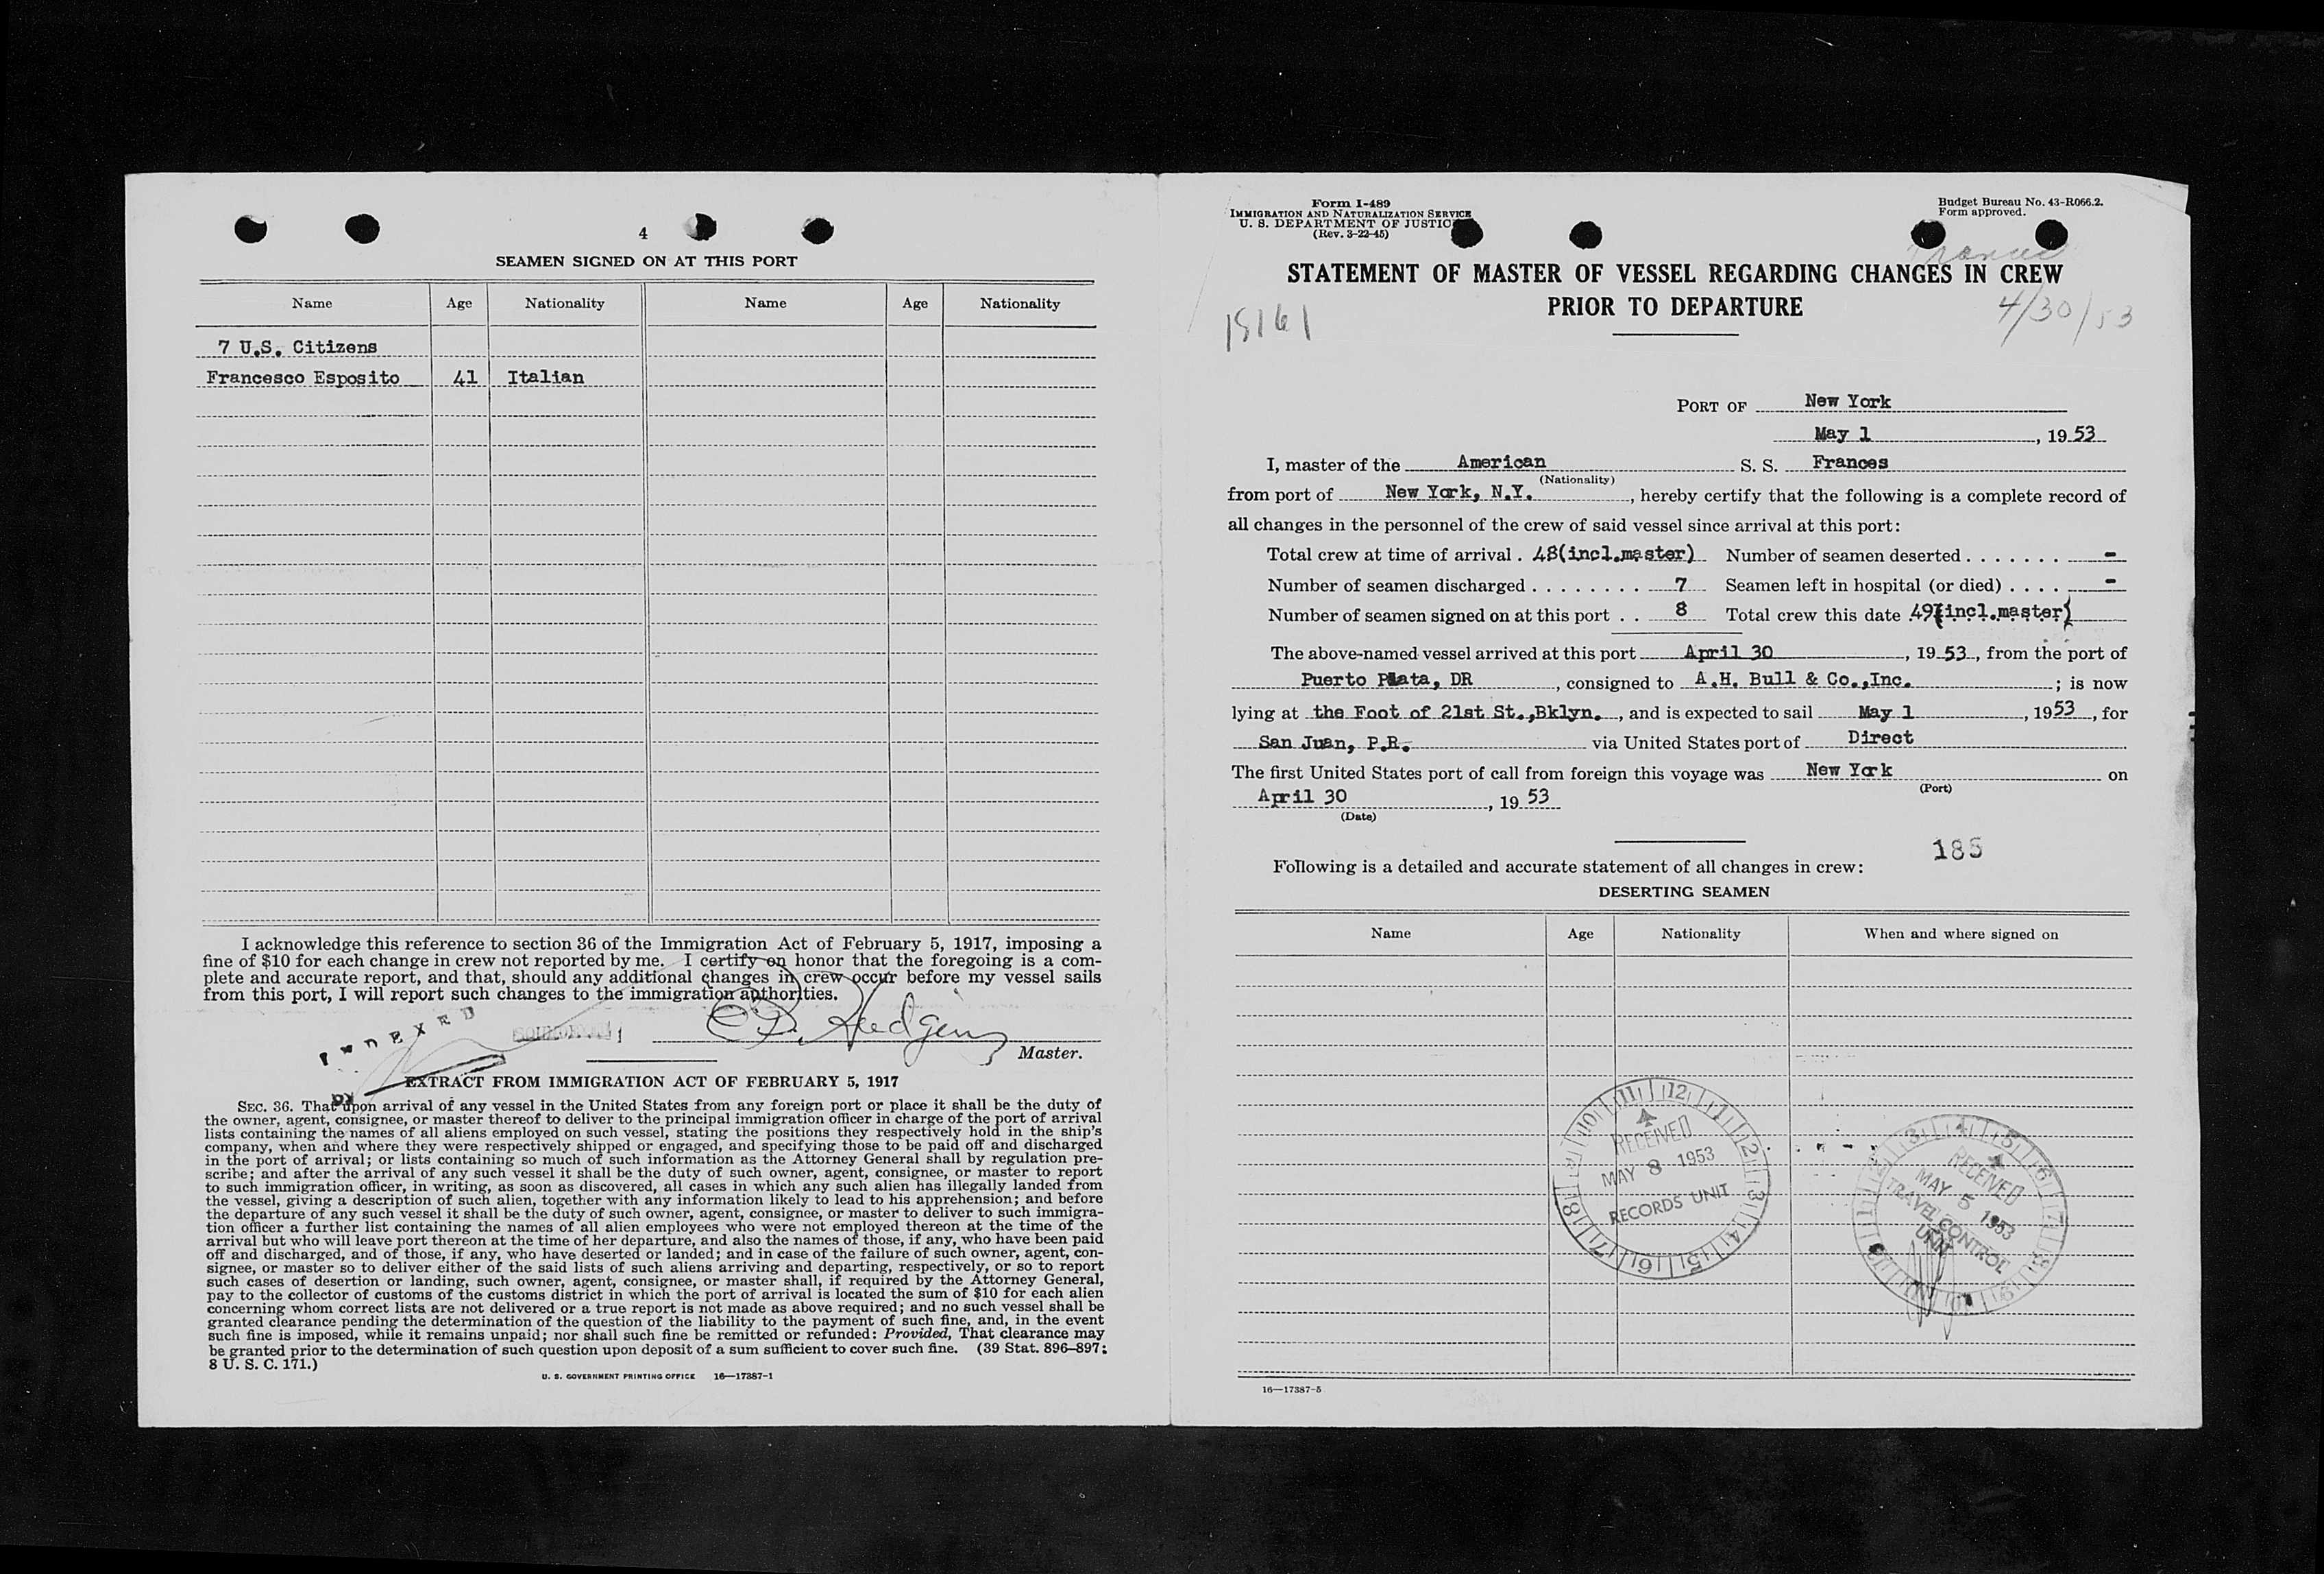 4
SEAMEN SIGNED ON AT THIS PORT
Name Age Nationality Name Age Nationality
7 U.S. Citizens
Francesco Esposito 41 Italian
I acknowledge this reference to section 36 of the Immigration Act of February 5, 1917, imposing a
fine of $10 for each change in crew not reported by me. I certify on honor that the foregoing is a com-
plete and accurate report, and that, should any additional changes in crew occur before my vessel sails
from this port, I will report such changes to the immigration authorities.
INDEXED
Master.
EXTRACT FROM IMMIGRATION ACT OF FEBRUARY 5, 1917
SEC. 36. That upon arrival of any vessel in the United States from any foreign port or place it shall be the duty of
the owner, agent, consignee, or master thereof to deliver to the principal immigration officer in charge of the port of arrival
lists containing the names of all aliens employed on such vessel, stating the positions they respectively hold in the ship's
company, when and where they were respectively shipped or engaged, and specifying those to be paid off and discharged
in the port of arrival; or lists containing so much of such information as the Attorney General shall by regulation pre-
scribe; and after the arrival of any such vessel it shall be the duty of such owner, agent, consignee, or master to report
to such immigration officer, in writing, as soon as discovered, all cases in which any such alien has illegally landed from
the vessel, giving a description of such alien, together with any information likely to lead to his apprehension; and before
the departure of any such vessel it shall be the duty of such owner, agent, consignee, or master to deliver to such immigra-
tion officer a further list containing the names of all alien employees who were not employed thereon at the time of the
arrival but who will leave port thereon at the time of her departure, and also the names of those, if any, who have been paid
off and discharged, and of those, if any, who have deserted or landed; and in case of the failure of such owner, agent, con-
signee, or master so to deliver either of the said lists of such aliens arriving and departing, respectively, or so to report
such cases of desertion or landing, such owner, agent, consignee, or master shall, if required by the Attorney General,
pay to the collector of customs of the customs district in which the port of arrival is located the sum of $10 for each alien
concerning whom correct lists are not delivered or a true report is not made as above required; and no such vessel shall be
granted clearance pending the determination of the question of the liability to the payment of such fine, and, in the event
such fine is imposed, while it remains unpaid; nor shall such fine be remitted or refunded: Provided, That clearance may
be granted prior to the determination of such question upon deposit of a sum sufficient to cover such fine. (39 Stat. 896–897;
8 U. S. C. 171.)
U. S. GOVERNMENT PRINTING OFFICE 16—17387-1
Form I-489
IMMIGRATION AND NATURALIZATION SERVICE
U. S. DEPARTMENT OF JUSTIC
(Rev. 3-22-45)
Budget Bureau No. 43-R066.2.
Form approved.
STATEMENT OF MASTER OF VESSEL REGARDING CHANGES IN CREW
PRIOR TO DEPARTURE
4/30/53
PORT OF New York
May 1, 19 53
I, master of the American S. S. Frances
(Nationality)
from port of New York, N.Y., hereby certify that the following is a complete record of
all changes in the personnel of the crew of said vessel since arrival at this port:
Total crew at time of arrival . 48(incl.master) Number of seamen deserted . . . . . . . -
Number of seamen discharged . . . . . . . . 7 Seamen left in hospital (or died) . . . . -
Number of seamen signed on at this port . . 8 Total crew this date 49(incl.master)
The above-named vessel arrived at this port April 30, 19 53, from the port of
Puerto Plata, DR, consigned to A.H. Bull & Co.,Inc.; is now
lying at the Foot of 21st St.,Bklyn., and is expected to sail May 1, 1953, for
San Juan, P.R. via United States port of Direct
The first United States port of call from foreign this voyage was New York on
(Port)
April 30, 19 53
(Date)
185
Following is a detailed and accurate statement of all changes in crew:
DESERTING SEAMEN
Name Age Nationality When and where signed on
RECEIVED
MAY 8 1953
RECORDS UNIT
RECEIVED
MAY 5 1953
TRAVEL CONTROL
UNIT
16—17387-5